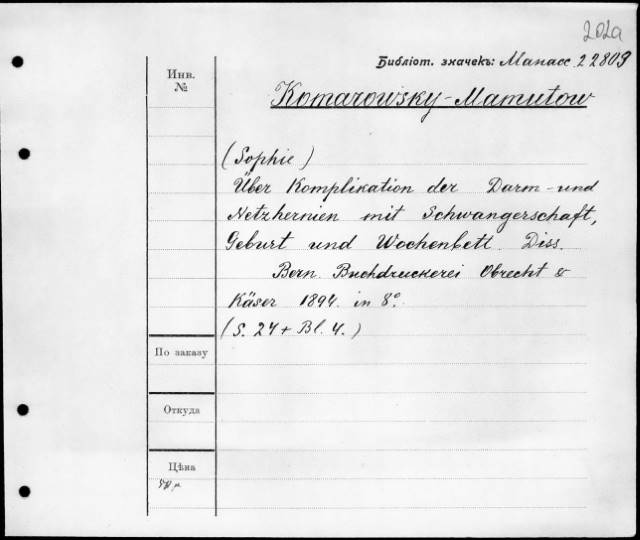 202а
Библіот. значекъ: Манасс 22809
Инв.
№
Komarowsky-Mamutow
(Sophie)
Über Komplikation der Darm- und
Netzhernien mit Schwangerschaft,
Geburt und Wochenbett. Diss.
Bern. Buchdruckerei Obrecht &
Käser 1894. in 8°.
(S. 24 + Bl. 4.)
По заказу
Откуда
Цѣна